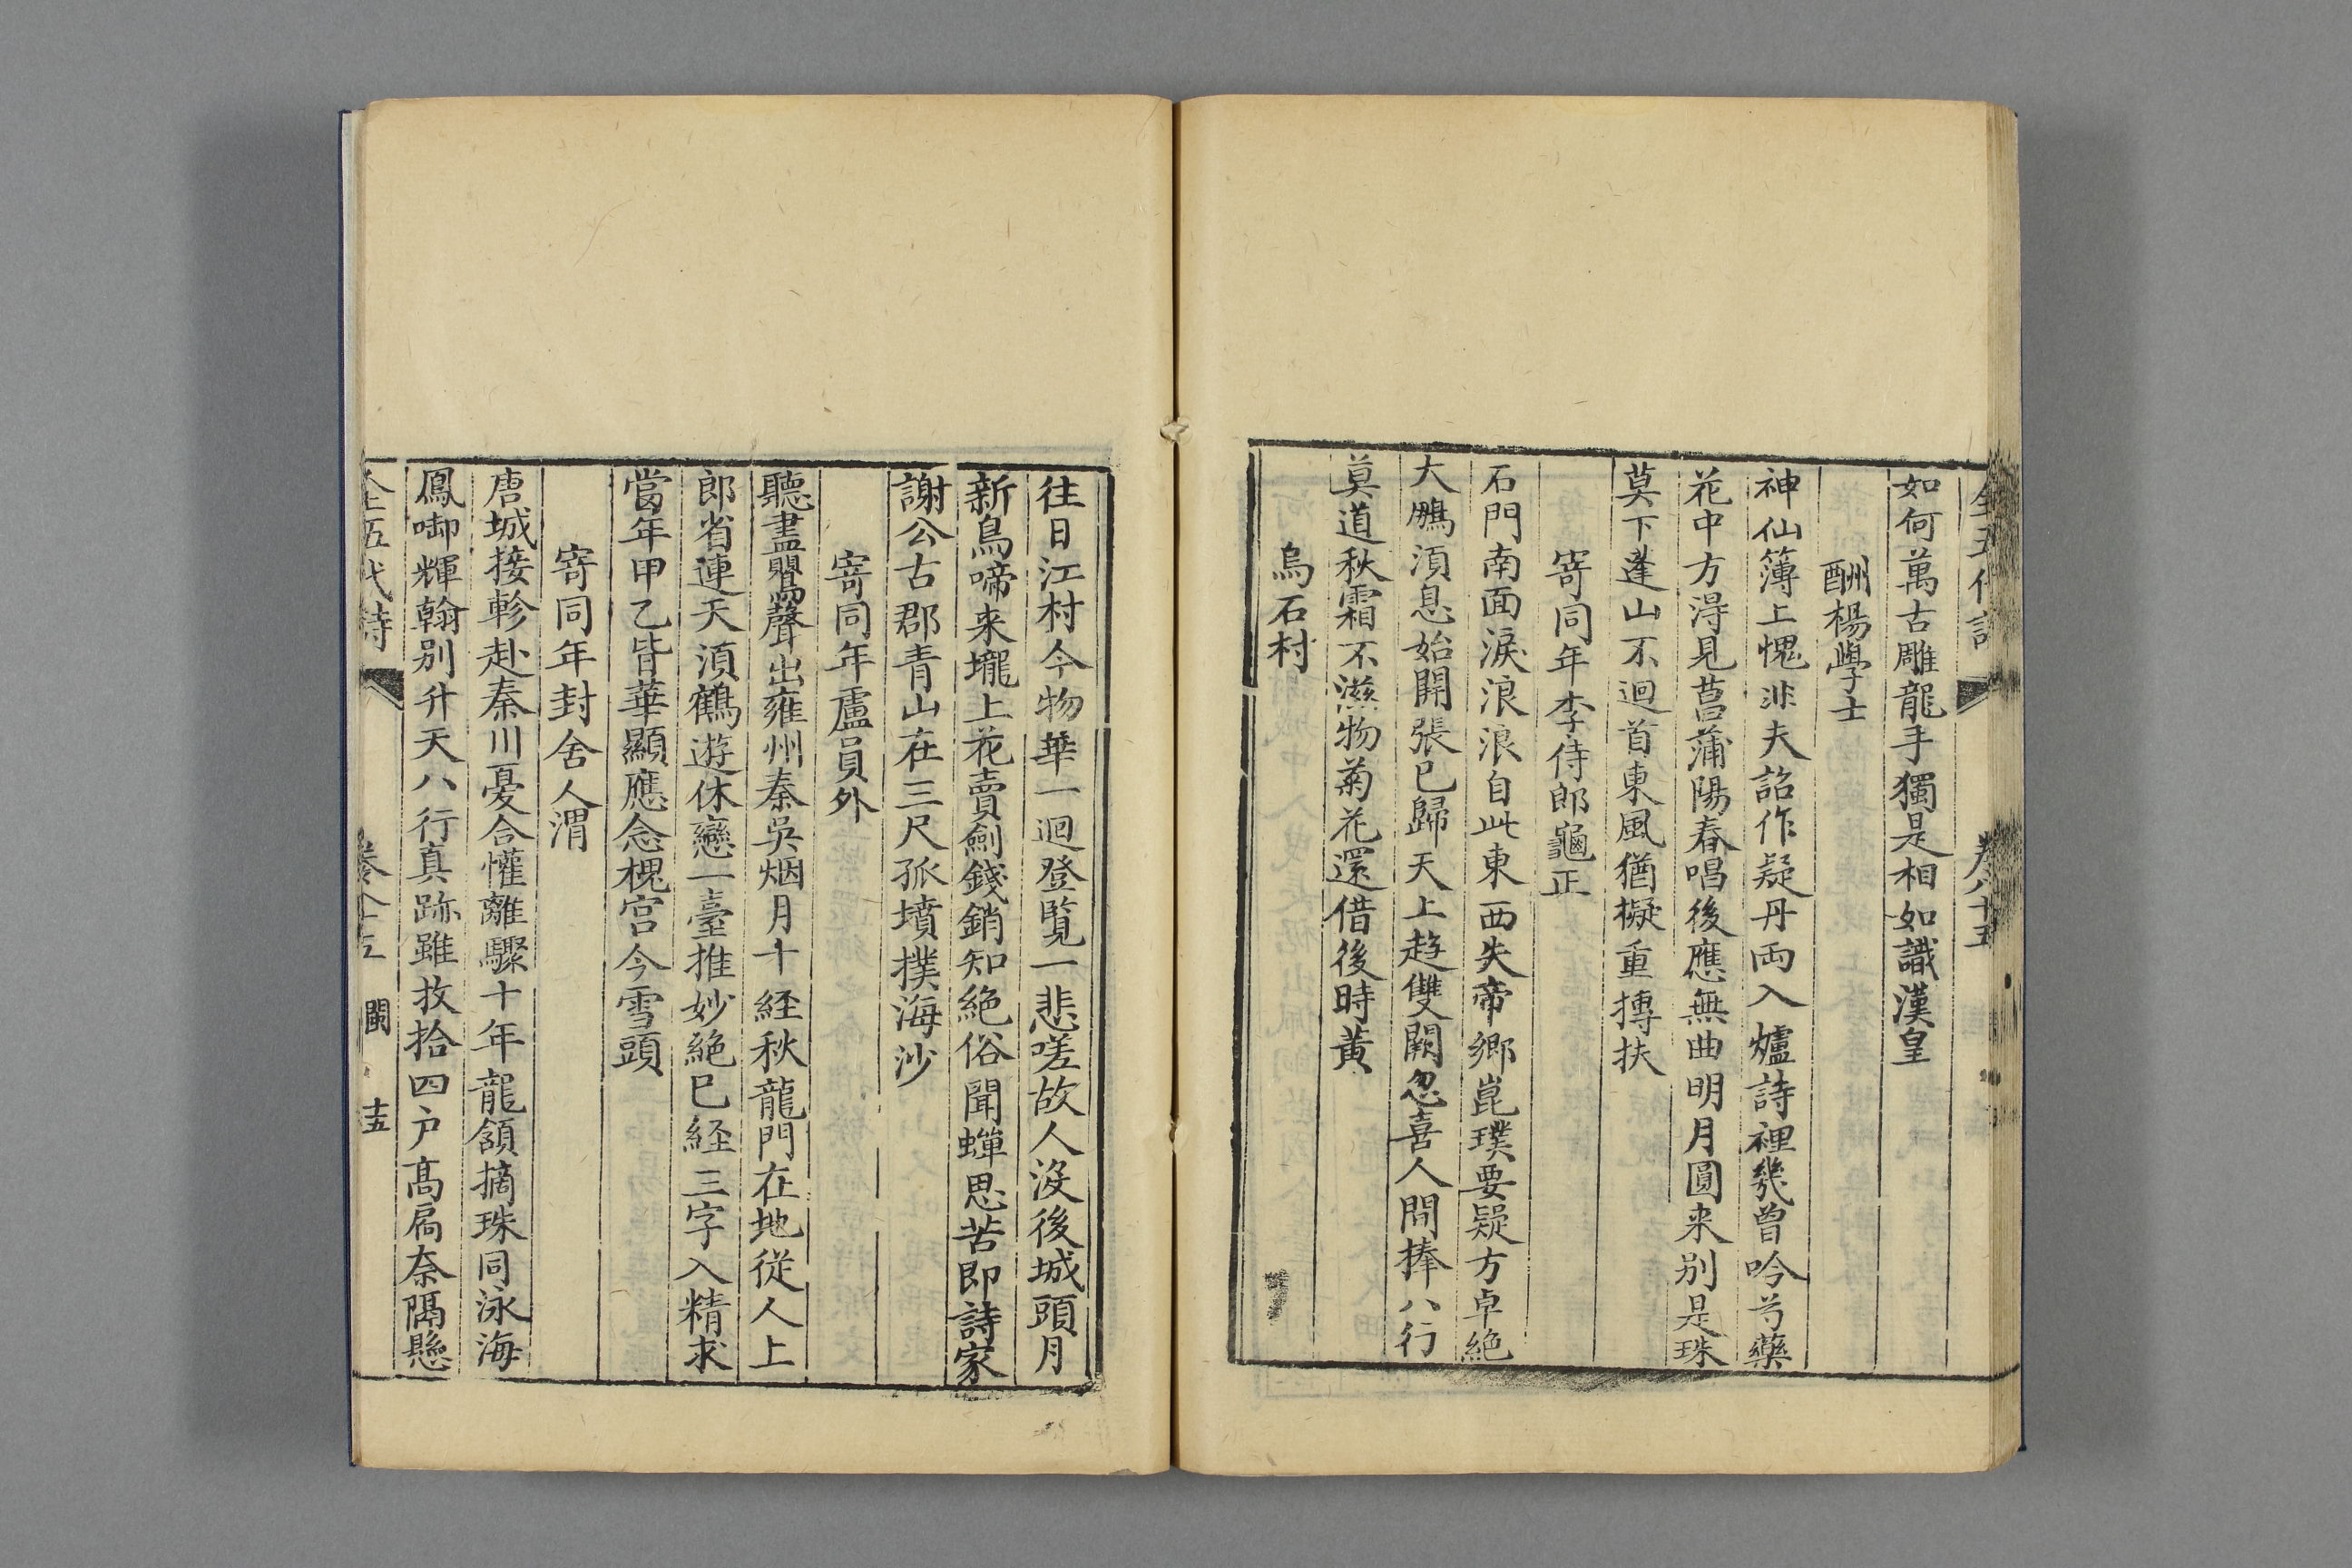 全五代詩 卷八十五
如何萬古雕龍手獨是相如識漢皇
酬楊學士
神仙簿上愧非夫詔作疑丹両入爐詩裡幾曾吟芍藥
花中方淂見菖蒲陽春唱後應無曲明月圓来别是珠
莫下蓬山不迴首東風猶擬重摶扶
寄同年李侍郎龜正
石門南面淚浪浪自此東西失帝鄉崑璞要疑方卓絶
大鵬湏息始開張已歸天上趋雙闕忽喜人間捧八行
莫道秋霜不滋物菊花還借後時黃
烏石村
往日江村今物華一迴登覧一悲嗟故人沒後城頭月
新鳥啼来壠上花賣劍錢銷知絶俗聞蟬思苦即詩家
謝公古郡青山在三尺孤墳撲海沙
寄同年盧員外
聽盡鸎聲出雍州秦吳烟月十経秋龍門在地從人上
郎省連天湏鶴遊休戀一臺推妙絶已経三字入精求
當年甲乙皆華顯應念槐宮今雪頭
寄同年封舍人渭
唐城接軫赴秦川憂合懽離驟十年龍頷摘珠同泳海
鳳啣輝翰别升天八行真跡雖收拾四户髙扃奈隔懸
全五代詩 卷八十五 閩 十五